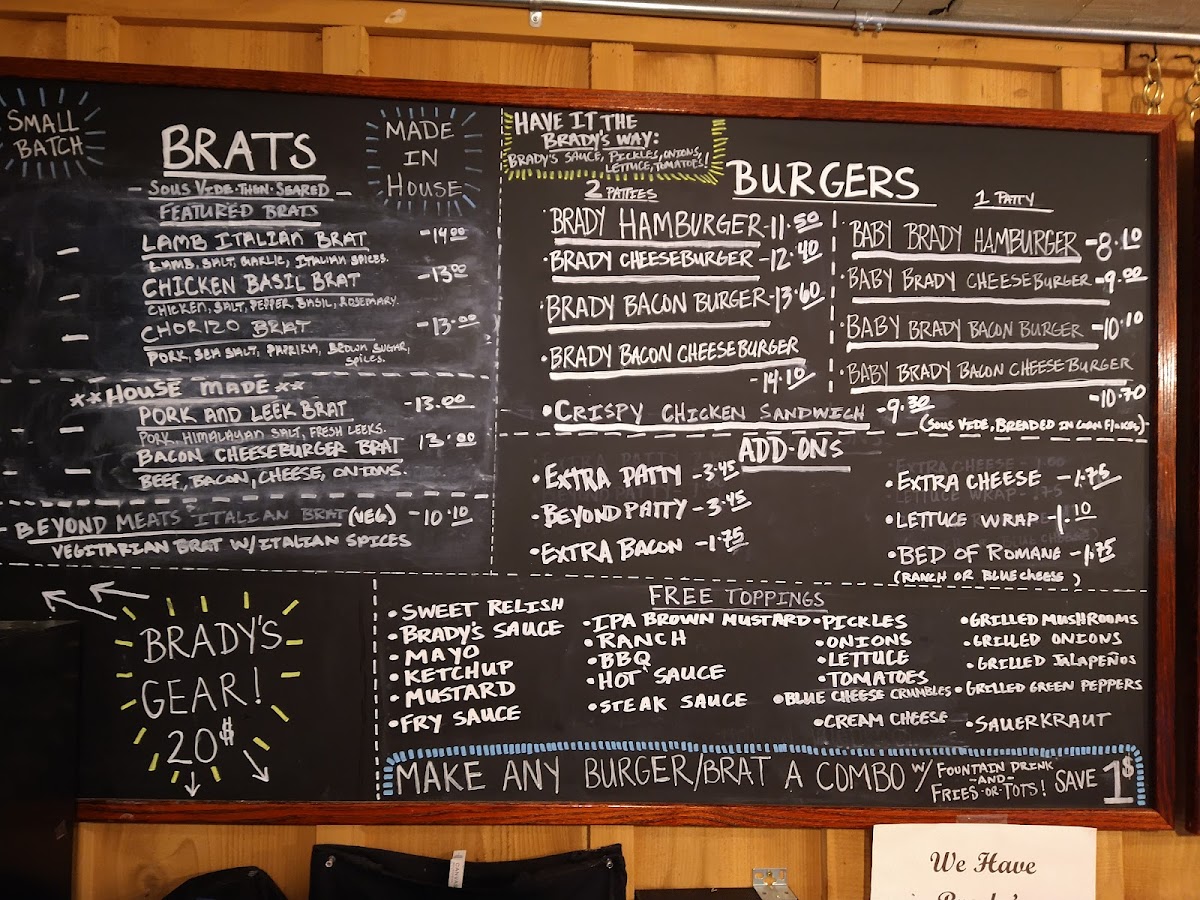 SMALL
BATCH
BRATS
MADE
IN
HOUSE
- SOUS VIDE · THEN · SEARED -
FEATURED BRATS
- LAMB ITALIAN BRAT -14.00
LAMB, SALT, GARLIC, ITALIAN SPICES.
- CHICKEN BASIL BRAT -13.00
CHICKEN, SALT, PEPPER, BASIL, ROSEMARY.
- CHORIZO BRAT -13.00
PORK, SEA SALT, PAPRIKA, BROWN SUGAR,
SPICES.
**HOUSE MADE**
- PORK AND LEEK BRAT -13.00
PORK, HIMALAYAN SALT, FRESH LEEKS.
- BACON CHEESEBURGER BRAT 13.00
BEEF, BACON, CHEESE, ONIONS.
- BEYOND MEATS ITALIAN BRAT (VEG) -10.10
VEGITARIAN BRAT W/ITALIAN SPICES
BRADY'S
GEAR!
20$
HAVE IT THE
BRADY'S WAY:
BRADY'S SAUCE, PICKLES, ONIONS,
LETTUCE, TOMATOES!
BURGERS
2 PATTIES
·BRADY HAMBURGER-11.50
·BRADY CHEESEBURGER -12.40
·BRADY BACON BURGER-13.60
·BRADY BACON CHEESEBURGER
-14.10
1 PATTY
·BABY BRADY HAMBURGER -8.10
·BABY BRADY CHEESEBURGER -9.00
·BABY BRADY BACON BURGER -10.10
·BABY BRADY BACON CHEESEBURGER
-10.70
•CRISPY CHICKEN SANDWICH -9.30
(SOUS VIDE, BREADED IN CORN FLAKES)
ADD-ONS
•EXTRA PATTY -3.45
•BEYOND PATTY -3.45
•EXTRA BACON -1.75
•EXTRA CHEESE -1.75
•LETTUCE WRAP -1.10
•BED OF ROMANE -1.75
(RANCH OR BLUE CHEESE)
FREE TOPPINGS
•SWEET RELISH
•BRADY'S SAUCE
•MAYO
•KETCHUP
•MUSTARD
•FRY SAUCE
•IPA BROWN MUSTARD
•RANCH
•BBQ
•HOT SAUCE
•STEAK SAUCE
•PICKLES
•ONIONS
•LETTUCE
•TOMATOES
•BLUE CHEESE CRUMBLES
•CREAM CHEESE
•GRILLED MUSHROOMS
•GRILLED ONIONS
•GRILLED JALAPEÑOS
•GRILLED GREEN PEPPERS
•SAUERKRAUT
MAKE ANY BURGER/BRAT A COMBO W/ FOUNTAIN DRINK
-AND-
FRIES·OR·TOTS! SAVE 1$
We Have